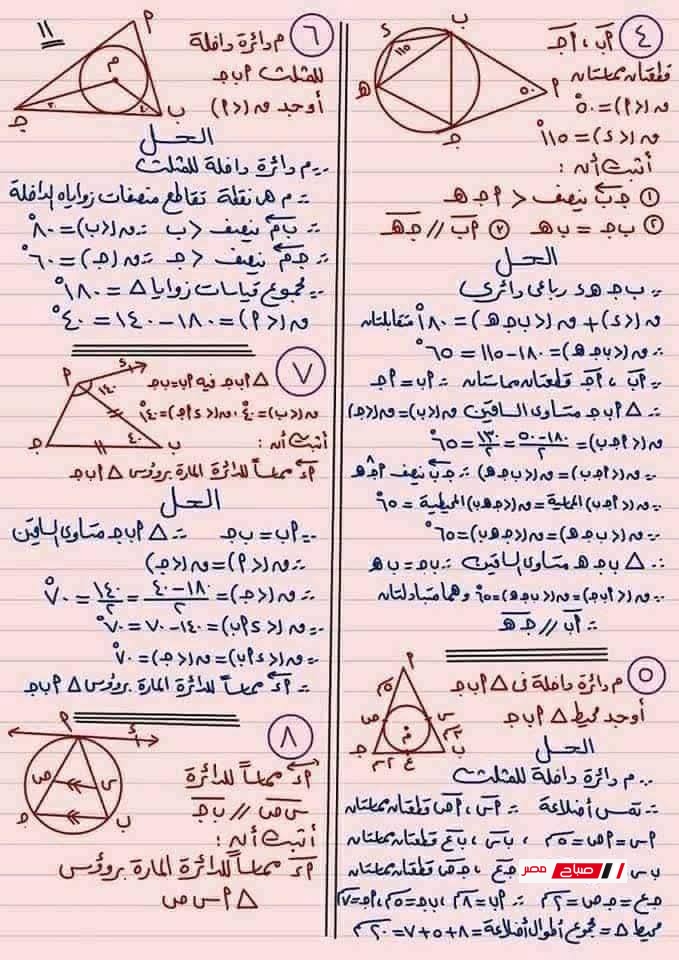 ١١
٤ أب ، أجـ
قطعتان مماستان
ق(<أ) = ٥٠°
ق(<د) = ١١٠°
أثبت أن :
١ جـب ينصف < أجـهـ
٢ ب جـ = ب هـ ٣ أب // جـهـ
الحل
∵ ب جـ هـ د رباعى دائرى
ق(<د) + ق(<ب جـ هـ) = ١٨٠° متقابلتان
∴ ق(<ب جـ هـ) = ١٨٠ - ١١٠ = ٦٥°
∵ أب ، أجـ قطعتان مماستان ∴ أب = أجـ
∴ △ أ ب جـ متساوى الساقين ق(<ب) = ق(<جـ)
ق(<أ جـ ب) = ١٨٠-٥٠/٢ = ١٣٠/٢ = ٦٥°
∵ ق(<أ جـ ب) = ق(<ب جـ هـ) ∴ جـب ينصف أجـهـ
∵ ق(<أ جـ ب) المماسية = ق(<جـ هـ ب) المحيطية = ٦٥°
∵ ق(<ب جـ هـ) = ق(<جـ هـ ب) = ٦٥°
∴ △ ب جـ هـ متساوى الساقين ∴ ب جـ = ب هـ
∵ ق(<أ ب جـ) = ق(<ب جـ هـ) = ٦٥° وهما متبادلتان
∴ أب // جـهـ
٥ م دائرة داخلة فى △ أ ب جـ
أوجد محيط △ أ ب جـ
الحل
∵ م دائرة داخلة للمثلث
∴ تمس أضلاعه ∴ أس ، أص قطعتان مماستان
أس = أص = ٥سم ، ب س ، ب ع قطعتان مماستان
ب س
جـ ع ، جـ ص قطعتان مماستان
جـ ع = جـ ص = ٢سم ∴ أب = ٨سم ، ب جـ = ٥سم ، أجـ = ٧سم
محيط △ = مجموع أطوال أضلاعه = ٨+٥+٧ = ٢٠سم
٦ م دائرة داخلة
للمثلث أ ب جـ
أوجد ق(<أ)
الحل
∵ م دائرة داخلة للمثلث
∴ م هى نقطة تقاطع منصفات زواياه الداخلة
∵ ب م ينصف < ب ∴ ق(<ب) = ٨٠°
∵ جـ م ينصف < جـ ∴ ق(<جـ) = ٦٠°
∵ مجموع قياسات زوايا △ = ١٨٠°
ق(<أ) = ١٨٠ - ١٤٠ = ٤٠°
٧ △ أ ب جـ فيه أب = ب جـ
ق(<ب) = ٤٠° ، ق(<د أ جـ) = ١٤٠°
أثبت أن :
أد مماساً للدائرة المارة برؤوس △ أ ب جـ
الحل
∵ أب = ب جـ ∴ △ أ ب جـ متساوى الساقين
∴ ق(<أ) = ق(<جـ)
∴ ق(<جـ) = ١٨٠-٤٠/٢ = ١٤٠/٢ = ٧٠°
∵ ق(<د أ ب) = ١٤٠ - ٧٠ = ٧٠°
∵ ق(<د أ ب) = ق(<جـ) = ٧٠°
∴ أد مماساً للدائرة المارة برؤوس △ أ ب جـ
٨ أد مماساً للدائرة
س ص // ب جـ
أثبت أن :
أد مماساً للدائرة المارة برؤوس
△ أ س ص
صباح مصر